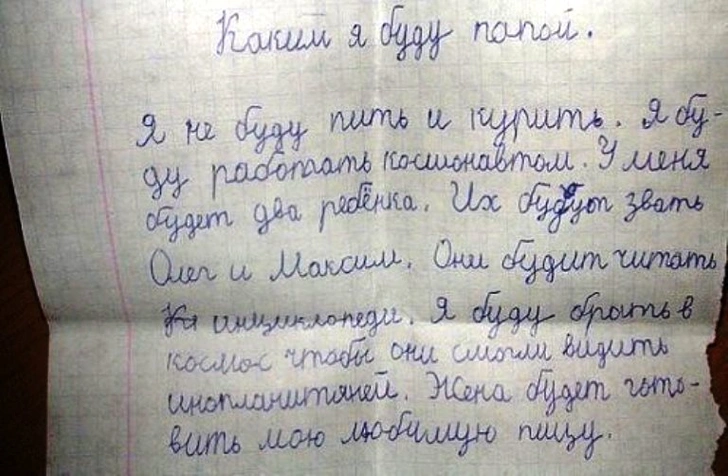 Каким я буду папой.
Я не буду пить и курить. Я бу-
ду работать космонавтом. У меня
будет два ребёнка. Их будут звать
Олег и Максим. Они будит читать
инциклопеди. Я буду брать в
космос чтобы они смогли видить
инопланитяней. Жена будет гото-
вить мою любимую пищу.